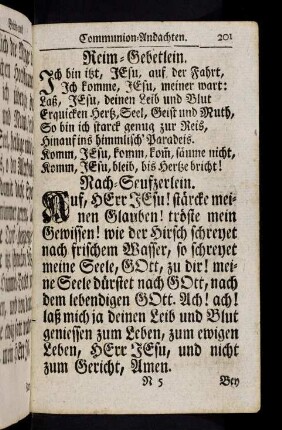 Communion-Andachten. 201
Reim-Gebetlein.
Ich bin itzt, JEsu, auf der Fahrt,
Ich komme, JEsu, meiner wart:
Laß, JEsu, deinen Leib und Blut
Erquicken Hertz, Seel, Geist und Muth,
So bin ich starck genug zur Reis,
Hinauf ins himmlisch' Paradeis.
Komm, JEsu, komm, kom̃, säume nicht,
Komm, JEsu, bleib, bis Hertze bricht!
Nach-Seufzerlein.
Auf, HErr JEsu! stärcke mei-
nen Glauben! tröste mein
Gewissen! wie der Hirsch schreyet
nach frischem Wasser, so schreyet
meine Seele, GOtt, zu dir! mei-
ne Seele dürstet nach GOtt, nach
dem lebendigen GOtt. Ach! ach!
laß mich ja deinen Leib und Blut
geniessen zum Leben, zum ewigen
Leben, HErr JEsu, und nicht
zum Gericht, Amen.
N 5 Bey